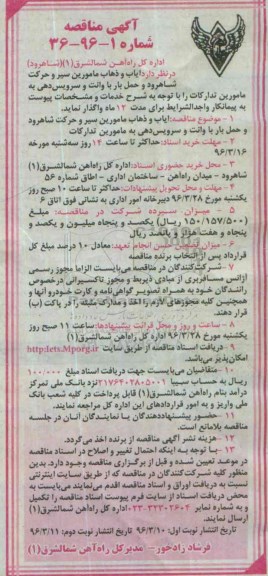 آگهی مناقصه
شماره ۱-۹۶-۳۶
اداره کل راه‌آهن شمالشرق(۱)(شاهرود)
درنظر دارد ایاب و ذهاب مامورین سیر و حرکت
شاهرود و حمل بار با وانت و سرویس‌دهی به
مامورین تدارکات را با توجه به شرح خدمات و مشخصات پیوست
به پیمانکار واجدالشرایط برای مدت ۱۲ ماه واگذار نماید.
۱ - موضوع مناقصه: ایاب و ذهاب مامورین سیر و حرکت شاهرود
و حمل بار با وانت و سرویس‌دهی به مامورین تدارکات
۲ - مهلت خرید اسناد: حداکثر تا ساعت ۱۲ روز سه‌شنبه مورخه
۹۶/۳/۱۶
۳ - محل خرید حضوری اسناد: اداره کل راه‌آهن شمالشرق(۱)
شاهرود - میدان راه‌آهن - ساختمان اداری - اطاق شماره ۵۶
۴ - مهلت و محل تحویل پیشنهادات: حداکثر تا ساعت ۱۰ صبح روز
یکشنبه مورخ ۹۶/۳/۲۸ دبیرخانه امور اداری به نشانی فوق اتاق ۶
۵ - میزان سپرده شرکت در مناقصه: مبلغ
(۱۵۰/۱۵۷/۵۰۰ ریال) یکصد و پنجاه میلیون و یکصد و
پنجاه و هفت هزار و پانصد ریال
۶ - میزان تضمین حسن انجام تعهد: معادل ۱۰ درصد مبلغ کل
قرارداد پس از انتخاب برنده مناقصه
۷ - شرکت‌کنندگان در مناقصه می‌بایست الزاما مجوز رسمی
آژانس مسافربری از مبادی ذیربط و مجوز تاکسیرانی درخصوص
رانندگان خود به همراه تصویر گواهی‌نامه و کارت خودرو آنها و
همچنین کلیه مجوزهای لازم را اخذ و مدارک مثبته را در پاکت (ب)
قرار دهند.
۸ - ساعت و روز و محل قرائت پیشنهادها: ساعت ۱۱ صبح روز
یکشنبه مورخ ۹۶/۳/۲۸ اداره کل راه‌آهن شمالشرق(۱)
۹ - دریافت اسناد مناقصه از طریق سایت http:iets.Mporg.ir
امکان‌پذیر می‌باشد.
۱۰ - متقاضیان می‌بایست جهت دریافت اسناد مبلغ ۱۰۰/۰۰۰
ریال به حساب سیبا ۲۱۷۶۴۰۲۸۰۵۰۰۱ نزد بانک ملی تمرکز
درآمد بنام راه‌آهن شمالشرق(۱) قابل پرداخت در کلیه شعب بانک
ملی واریز و به امور قراردادهای این اداره کل مراجعه نمایند.
۱۱ - حضور پیشنهاددهندگان یا نمایندگان آنان در جلسه
مناقصه بلامانع است.
۱۲ - هزینه نشر آگهی مناقصه از برنده اخذ می‌گردد.
۱۳ - با توجه به اینکه احتمال تغییر و اصلاح در اسناد مناقصه
در موعد تعیین شده و قبل از برگزاری مناقصه وجود دارد. بدین
منظور کلیه شرکت‌کنندگان در مناقصه که از طریق سایت اینترنتی
نسبت به دریافت اوراق و اسناد مناقصه اقدم می‌نمایند می‌بایست به
محض دریافت اسناد از سایت فرم پیوست اسناد مناقصه را تکمیل
و به شماره نمابر ۳۲۳۰۲۶۰۴-۰۲۳ اداره کل راه‌آهن شمالشرق(۱)
ارسال نمایند.
تاریخ انتشار نوبت اول: ۹۶/۳/۱۰ تاریخ انتشار نوبت دوم: ۹۶/۳/۱۱
فرشاد رادخور - مدیرکل راه‌آهن شمالشرق(۱)